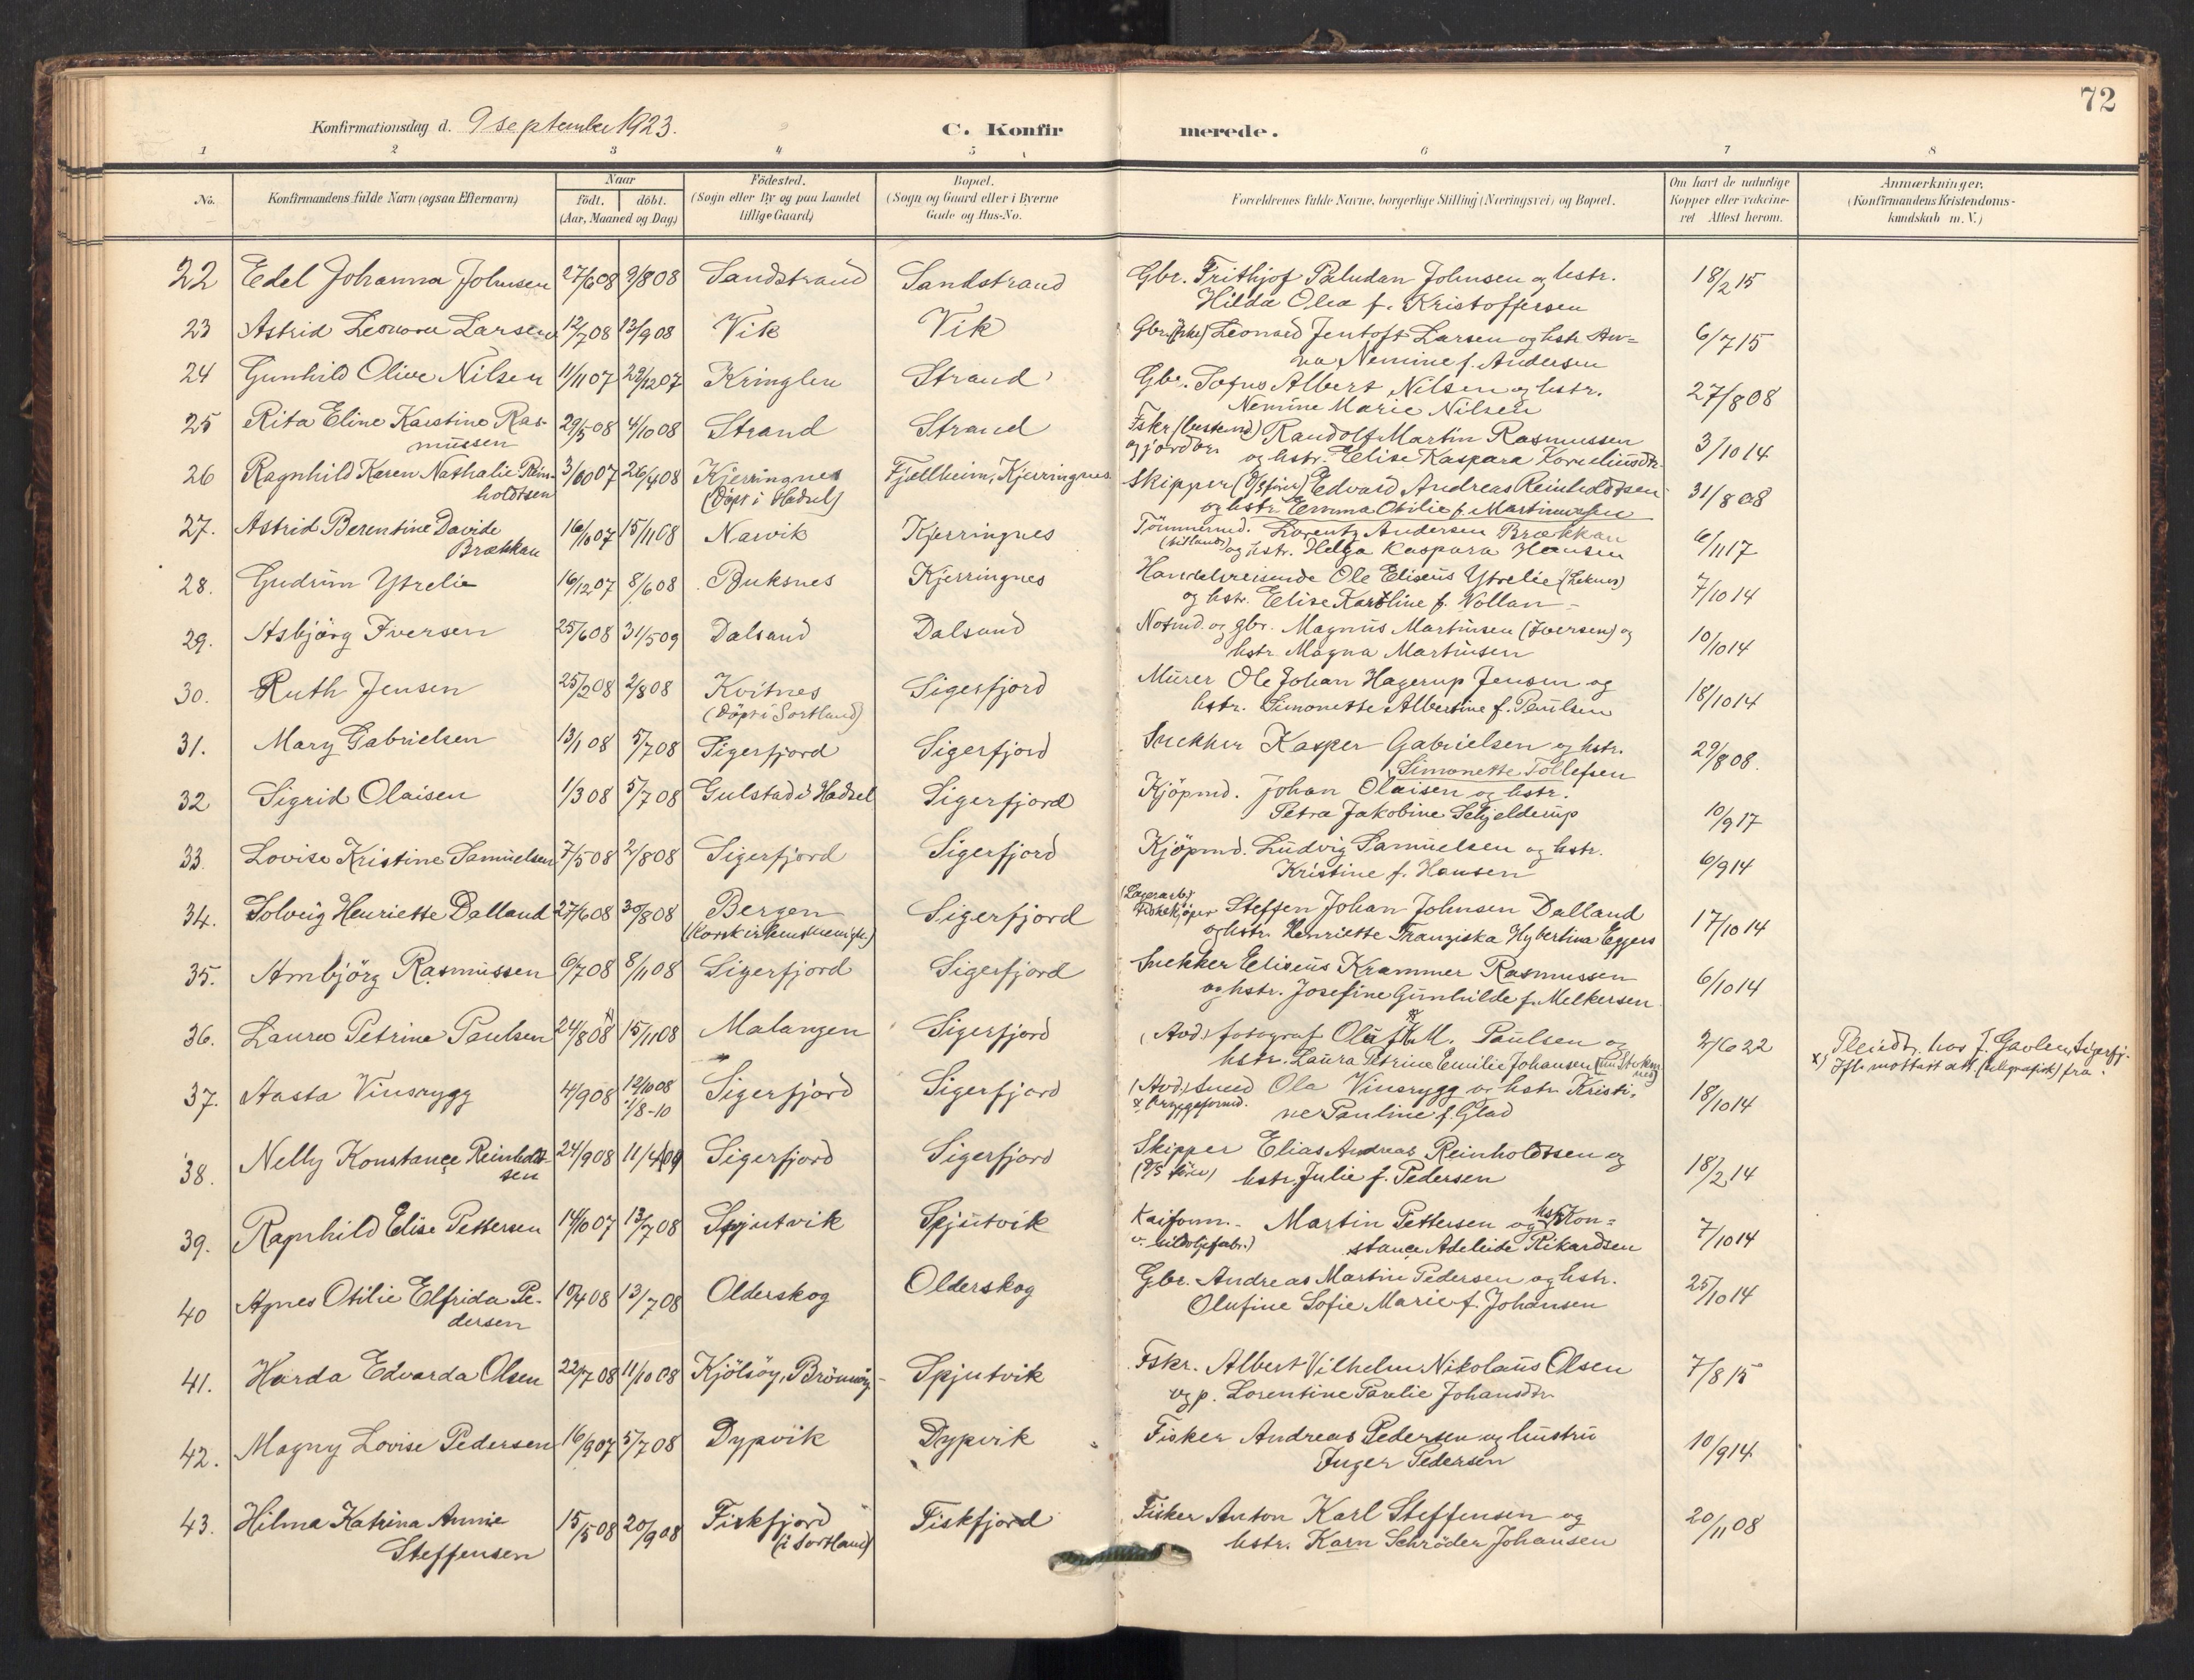 72
Konfirmationsdag d. 9 september 1923.
C. Konfirmerede.
1 2 3 4 5 6 7 8
No.
Konfirmandens fulde Navn (ogsaa Efternavn)
Naar
födt. döbt.
(Aar, Maaned og Dag)
Födested.
(Sogn eller By og paa Landet
tillige Gaard)
Bopæl.
(Sogn og Gaard eller i Byerne
Gade og Hus-No.
Forældrenes fulde Navne, borgerlige Stilling (Næringsvei) og Bopæl.
Om havt de naturlige
Kopper eller vakcine-
ret Attest herom.
Anmærkninger.
(Konfirmandens Kristendoms-
kundskab m. V.)
22 Edel Johanna Johnsen 27/6 08 9/8 08 Sandstrand Sandstrand Gbr. Frithjof Paludan Johnsen og hstr. 18/2 15
Hilda Olea f. Kristoffersen
23 Astrid Leonora Larsen 12/7 08 13/9 08 Vik Vik Gbr. Leonard Jentoft Larsen og hstr. An= 6/7 15
na Nemine f. Andersen
24 Gunhild Olive Nilsen 11/11 07 29/12 07 Kringlen Strand Gbr. Tofus Albert Nilsen og hstr. 27/8 08
Nemine Marie Nilsen
25 Rita Eline Karstine Ras- 29/5 08 4/10 08 Strand Strand Fskr (bestemd) Randolf Martin Rasmussen 3/10 14
mussen og jordbr. og hstr. Elise Kaspara Korneliusdtr.
26 Ragnhild Karen Nathalie Rein- 3/10 07 26/4 08 Kjerringnes Fjellheim, Kjerringnes Skipper Edvard Andreas Reinholdtsen 31/8 08
holdtsen (Döpt i Hadsel) og hstr. Emma Otilie f. Martinussen
27. Astrid Berentine Davide 16/10 07 15/11 08 Narvik Kjerringnes Tömmermd. Lorentz Andersen Brækkan 6/11 17
Brækkan og hstr. Helga Kaspara Hansen
28. Gudrun Ytrelie 16/12 07 8/6 08 Buksnes Kjerringnes Handelsreisende Ole Eliseus Ytrelie (Leknes) 7/10 14
og hstr. Elise Karoline f. Vollan
29. Asbjörg Iversen 25/6 08 31/5 09 Dalsand Dalsand Notmd. og gbr. Magnus Martinsen (Iversen) og 10/10 14
hstr. Magna Martinsen
30. Ruth Jensen 25/2 08 2/8 08 Kvitnes Sigerfjord Murer Ole Johan Hagerup Jensen og 18/10 14
(Döpt i Sortland) hstr. Simonette Albertine f. Paulsen
31. Mary Gabrielsen 13/1 08 5/7 08 Sigerfjord Sigerfjord Snekker Kasper Gabrielsen og hstr. 29/8 08.
Simonette Tollefsen
32 Sigrid Olaisen 1/3 08 5/7 08 Gulstad i Hadsel Sigerfjord Kjöpmd. Johan Olaisen og hstr. 10/9 17
Petra Jakobine Schjelderup
33. Lovise Kristine Samuelsen 7/5 08 2/8 08 Sigerfjord Sigerfjord Kjöpmd. Ludvig Samuelsen og hstr. 6/9 14
Kristine f. Hansen
34. Solveig Henriette Dalland 27/6 08 30/8 08 Bergen Sigerfjord (Lagerarb.) Fiskekjöper Steffen Johan Johnsen Dalland 17/10 14
(Korskirkens menigh.) og hstr. Henriette Franziska Hybertina Eggers
35. Arnbjörg Rasmussen 6/7 08 8/11 08 Sigerfjord Sigerfjord Snekker Eliseus Krammer Rasmussen 6/10 14
og hstr. Josefine Gunhilde f. Melkersen
36. Laura Petrine Paulsen 24/8 08 15/11 08 Malangen Sigerfjord (Avd.) fotograf Olaf M. Paulsen og 2/6 22 Pleiedtr. hos J. Gavlen, Sigerfj.
hstr. Laura Petrine Emilie Johansen x) Ifl. mottatt att. (telegrafisk) fra
37. Aasta Vinsrygg 4/9 08 12/10 08 Sigerfjord Sigerfjord (Avd.) Smed Ola Vinsrygg og hstr. Kristi= 18/10 14
1/8-10 ne Pauline f. Glad
38. Nelly Konstance Reinholdt- 24/9 08 11/4 09 Sigerfjord Sigerfjord Skipper Elias Andreas Reinholdtsen og 18/2 14
sen hstr. Julie f. Pedersen
39. Ragnhild Elise Pettersen 14/10 07 13/7 08 Spjutvik Spjutvik Kaiform. Martin Pettersen og hstr. Kon= 7/10 14
v. sildoljefabr.) stance Adeleide Rikardsen
40 Agnes Otilie Elfrida Pe- 10/4 08 13/7 08 Olderskog Olderskog Gbr. Andreas Martin Pedersen og hstr. 25/10 14
dersen Olufine Sofie Marie f. Johansen
41. Harda Edvarda Olsen 22/7 08 11/10 08 Kjölsöy, Brönnöy Spjutvik Fskr. Albert Vilhelm Nikolaus Olsen 7/8 15
og p. Lorentine Parelie Johansdtr.
42. Magny Lovise Pedersen 16/9 07 5/7 08 Dypvik Dypvik Fisker Andreas Pedersen og hustru 10/9 14
Inger Pedersen
43. Hilma Katrina Annie 15/5 08 20/9 08 Fiskfjord Fiskfjord Fisker Anton Karl Steffensen og 20/11 08
Steffensen (i Sortland) hstr. Karn Schröder Johansen